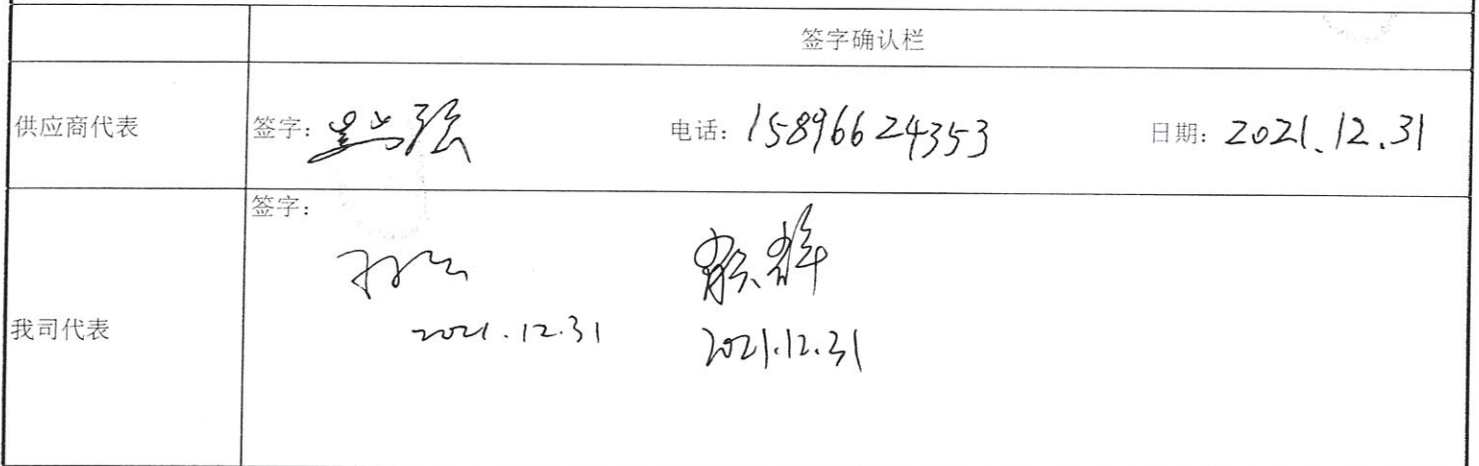 签字确认栏
供应商代表 签字： 电话：15896624353 日期：2021.12.31
签字：
我司代表
2021.12.31 2021.12.31